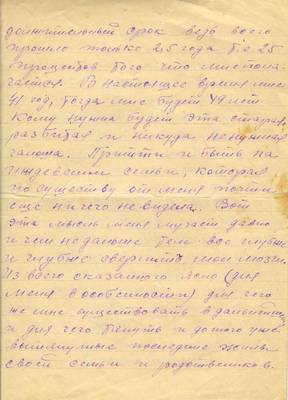 длительный срок ведь всего
прошло только 2,5 года т.е. 25
процентов того что мне пола-
гается. В настоящее время мне
41 год, тогда мне будет 49 лет
Кому нужна будет эта старая,
разбитая и никуда ненужная
галоша. Притти и быть на
иждевении семьи, которая
по существу от меня почти
еще ничего не видела. Вот
эта мысль меня мучает давно
и чем дальше тем все глубже
и глубже сверлит мои мозги.
Из всего сказанного ясно (для
меня в особенности) для чего
же мне существовать в дальнейшем
и для чего тянуть и до того уже
вытянутые последние жилы
своей семьи и родственников.